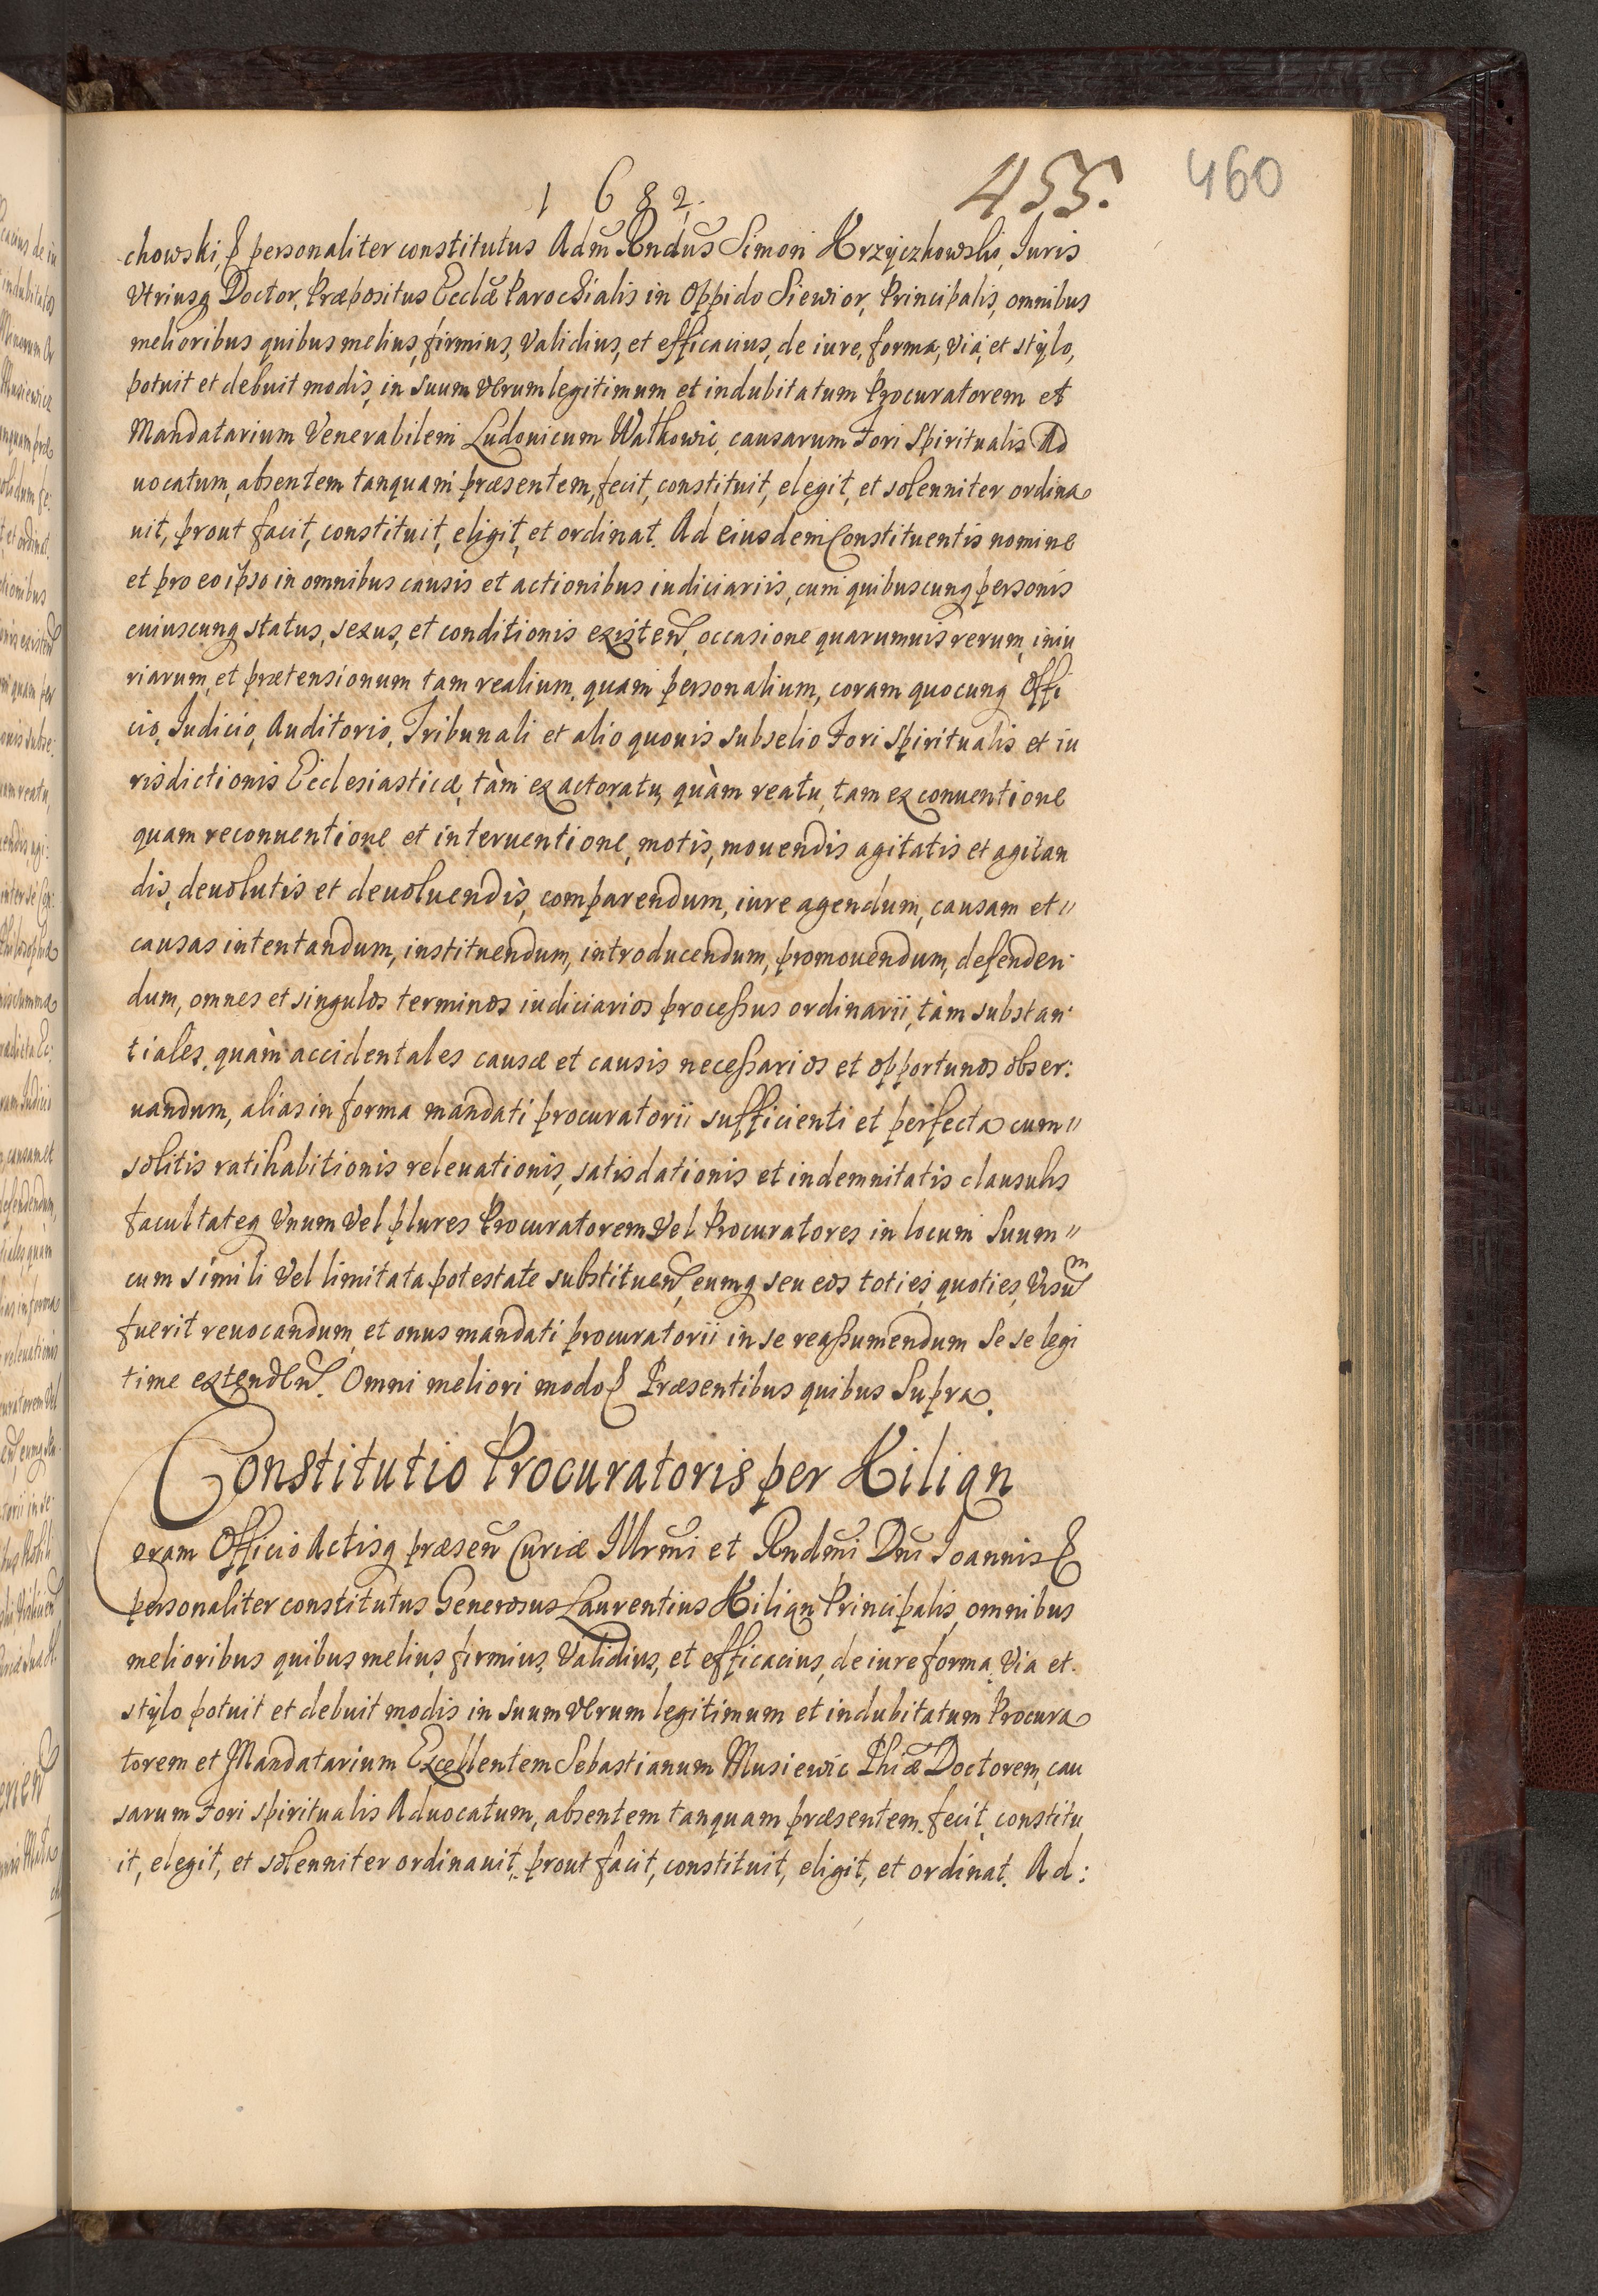 1682.
455.
460
chowski, & personaliter constitutus Adm̃ Rndũs Simon Krzyczkowski, Iuris
Vtriusq Doctor, Præpositus Ecclæ̃ Parochialis in Oppido Siewior, Principalis, omnibus
melioribus quibus melius, firmius, validius, et efficacius, de iure, forma, via, et stylo,
potuit et debuit modis, in suum verum legitimum et indubitatum Procuratorem et
Mandatarium Venerabilem Ludouicum Wałkowic, causarum Fori Spiritualis Ad
uocatum, absentem tanquam præsentem, fecit, constituit, elegit, et solenniter ordina
uit, prout facit, constituit, eligit, et ordinat. Ad eiusdem Constituentis nomine
et pro eo ipso in omnibus causis et actionibus iudiciariis, cum quibuscunq personis
cuiuscunq status, sexus, et conditionis existen, occasione quarumuis rerum, iniu
riarum, et prætensionum tam realium, quam personalium, coram quocunq Offi
cio, Iudicio, Auditorio, Tribunali et alio quouis subselio Fori Spiritualis et iu
risdictionis Ecclesiasticæ, tàm ex actoratu, quàm reatu, tam ex conuentione
quam reconuentione et interuentione, motis, mouendis agitatis et agitan
dis, deuolutis et deuoluendis, comparendum, iure agendum, causam et "
causas intentandum, instituendum, introducendum, promouendum, defenden
dum, omnes et singulos terminos iudiciarios processus ordinarii, tàm substan
tiales, quàm accidentales causæ et causis necessarios et opportunos obser:
uandum, alias in forma mandati procuratorii sufficienti et perfecta cum "
solitis ratihabitionis releuationis, satisdationis et indemnitatis clausulis
facultateq vnum vel plures Procuratorem vel Procuratores in locum Suum "
cum simili vel limitata potestate substituen, eumq seu eos toties, quoties, Visum
fuerit reuocandum, et onus mandati procuratorii in se reassumendum Se se legi
time extenden. Omni meliori modo & Præsentibus quibus Supra.
Constitutio Procuratoris per Kilian
oram Officio Actisq præsen Curiæ Illrm̃i et Rndm̃i Dni Ioannis &
personaliter constitutus Generosus Laurentius Kilian Principalis, omnibus
melioribus quibus melius, firmius, Validius, et efficacius, de iure forma, Via et
stylo potuit et debuit modis in suum verum legitimum et indubitatum Procura
torem et Mandatarium Excellentem Sebastianum Musiewic Phiæ̃ Doctorem, cau
sarum Fori spiritualis Aduocatum, absentem tanquam præsentem fecit, constitu
it, elegit, et solenniter ordinauit, prout facit, constituit, eligit, et ordinat. Ad: